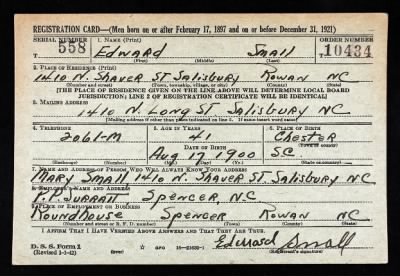 REGISTRATION CARD—(Men born on or after February 17, 1897 and on or before December 31, 1921)
SERIAL NUMBER 1. NAME (Print) ORDER NUMBER
558 EDWARD SMALL 10434
(First) (Middle) (Last)
2. PLACE OF RESIDENCE (Print)
1410 N. SHAVER ST SALISBURY ROWAN NC
(Number and street) (Town, township, village, or city) (County) (State)
[THE PLACE OF RESIDENCE GIVEN ON THE LINE ABOVE WILL DETERMINE LOCAL BOARD
JURISDICTION; LINE 2 OF REGISTRATION CERTIFICATE WILL BE IDENTICAL]
3. MAILING ADDRESS
1410 N. LONG ST. SALISBURY NC
[Mailing address if other than place indicated on line 2. If same insert word same]
4. TELEPHONE 5. AGE IN YEARS 6. PLACE OF BIRTH
2061-M 41 CHESTER
DATE OF BIRTH (Town or county)
AUG 19 1900 SC
(Exchange) (Number) (Mo.) (Day) (Yr.) (State or country)
7. NAME AND ADDRESS OF PERSON WHO WILL ALWAYS KNOW YOUR ADDRESS
MARY SMALL 1410 N. SHAVER ST SALISBURY NC
8. EMPLOYER'S NAME AND ADDRESS
SPENCER, N.C
9. PLACE OF EMPLOYMENT OR BUSINESS
ROUNDHOUSE SPENCER ROWAN NC
(Number and street or R. F. D. number) (Town) (County) (State)
I AFFIRM THAT I HAVE VERIFIED ABOVE ANSWERS AND THAT THEY ARE TRUE.
D. S. S. Form 1
(Revised 1-1-42) GPO 16—21630-1 Edward Small